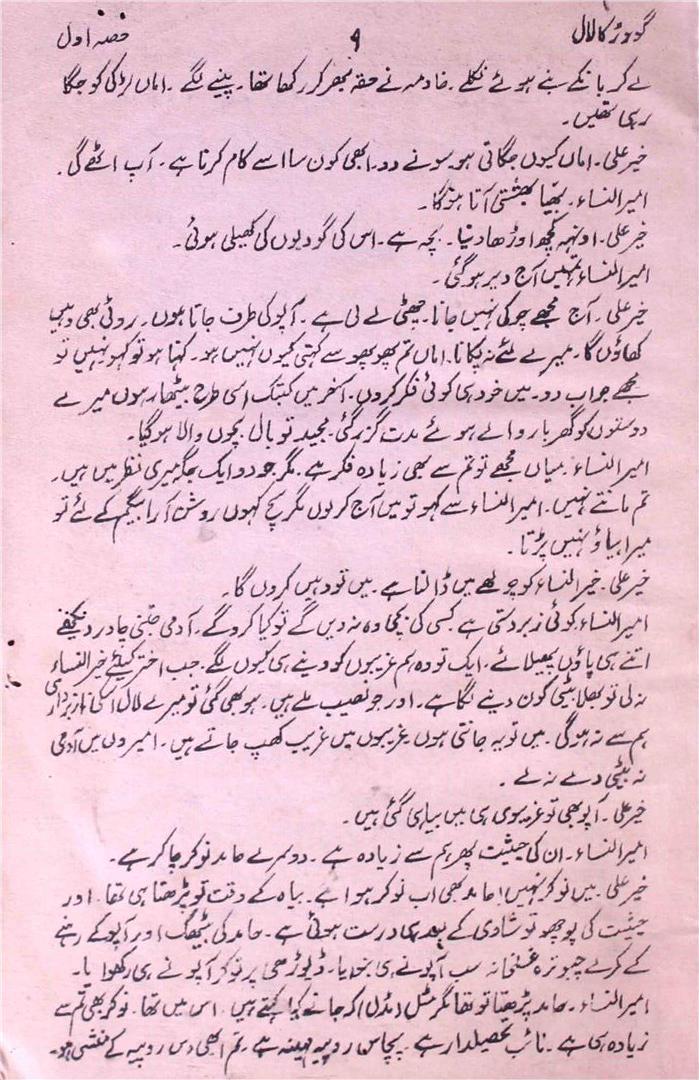 گودڑ کا لال ۹ حصہ اول
لے کر بانکے بنے ہوئے نکلے ۔ خادمہ نے حقہ بھر کر رکھا تھا ۔ پینے لگے ۔ اماں لڑکی کو جگا
رہی تھیں ۔
خیر علی ۔ اماں کیوں جگاتی ہو سونے دو ۔ ابھی کون سا اسے کام کرنا ہے ۔ آپ اٹھے گی ۔
امیر النساء ۔ بھیا بھشتی آتا ہوگا ۔
خیر علی ۔ اونہہ کچھ اوڑھا دینا ۔ بچہ ہے ۔ اس کی گودیوں کی کھیلی ہوئی ۔
امیر النساء تمہیں آج دیر ہو گئی ۔
خیر علی ۔ آج مجھے چوکی نہیں جانا ۔ چھٹی لے لی ہے ۔ آپو کی طرف جاتا ہوں ۔ روٹی بھی وہیں
کھاؤں گا ۔ میرے لئے نہ پکانا ۔ اماں تم پھوپھو سے کہتی کیوں نہیں ہو ۔ کہنا ہو تو کہو نہیں تو
مجھے جواب دو ۔ میں خود ہی کوئی فکر کروں ۔ آخر میں کبتک اسی طرح بیٹھا رہوں میرے
دوستوں کو گھر بار والے ہوئے مدت گزر گئی ۔ مجید تو بال بچوں والا ہو گیا ۔
امیر النساء ۔ میاں مجھے تو تم سے بھی زیادہ فکر ہے ۔ مگر جو دو ایک جگہ میری نظر میں ہیں ۔
تم مانتے نہیں ۔ امیر النساء سے کہو تو میں آج کر لوں مگر سچ کہوں روشن آرا بیگم کے لئے تو
میرا بیاؤ نہیں پڑتا ۔
خیر علی ۔ خیر النساء کو چولھے میں ڈالنا ہے ۔ میں تو وہیں کروں گا ۔
امیر النساء ۔ کوئی زبردستی ہے کسی کی بیٹی وہ نہ دیں گے تو کیا کرو گے ۔ آدمی جتنی چادر دیکھے
اتنے ہی پاؤں پھیلائے ۔ ایک تو وہ ہم غریبوں کو دینے ہی کیوں لگے ۔ جب اختر کیلئے خیر النساء
نہ لی تو بھلا بیٹی کون دینے لگا ہے ۔ اور جو نصیب ملے ہیں ۔ ہو بھی گئی تو میرے لال اسکی نازبرداری
ہم سے نہ ہوگی ۔ میں تو یہ جانتی ہوں غریبوں میں غریب کھپ جاتے ہیں ۔ امیروں میں آدمی
نہ بیٹی دے نہ لے ۔
خیر علی ۔ آپو بھی تو غریبوی ہی میں بیاہی گئی ہیں ۔
امیر النساء ۔ ان کی حیثیت پھر ہم سے زیادہ ہے ۔ دوسرے حامد نوکر چاکر ہے ۔
خیر علی ۔ میں نوکر نہیں! حامد بھی اب نوکر ہوا ہے ۔ بیاہ کے وقت تو پڑھتا ہی تھا ۔ اور
حیثیت کی پوچھو تو شادی کے بعد ہی درست ہوئی ہے ۔ حامد کی بیٹھک اور آپو کے رہنے
کے کمرے چبوترہ غسلخانہ سب آپو نے ہی بنوایا ۔ ڈیوڑھی پر نوکر آپو نے ہی رکھوایا ۔
امیر النساء ۔ حامد پڑھتا تو تھا مگر مثل (مڈل) کہ جانے کیا کہتے ہیں ۔ اس میں تھا ۔ نوکر بھی تم سے
زیادہ ہی ہے ۔ نائب تحصیلدار ہے ۔ پچاس روپیہ مہینہ ہے ۔ تم ابھی دس روپیہ کے منشی ہو ۔